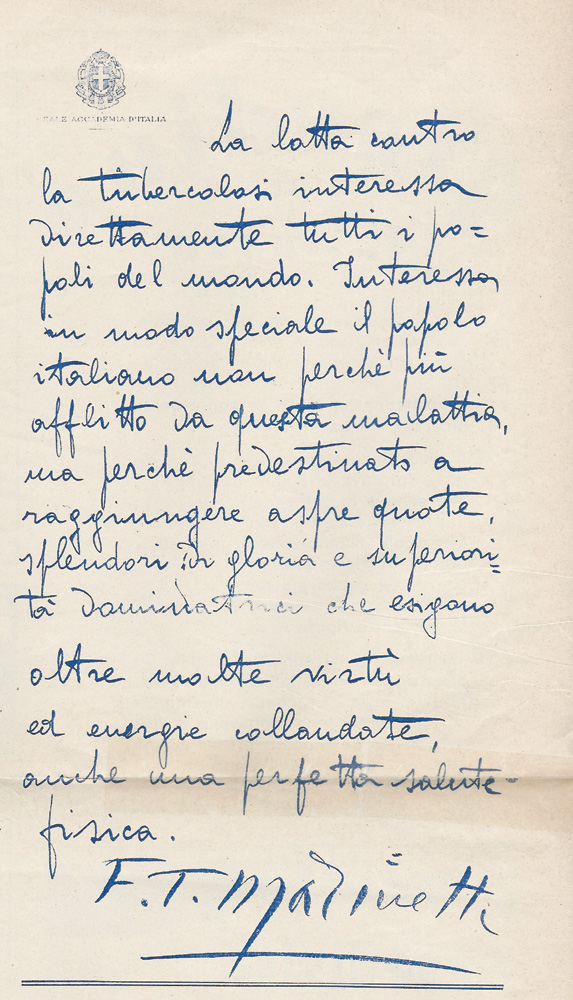 REALE ACCADEMIA D'ITALIA
La lotta contro
la tubercolosi interessa
direttamente tutti i po=
poli del mondo. Interessa
in modo speciale il popolo
italiano non perchè più
afflitto da questa malattia,
ma perchè predestinato a
raggiungere aspre quote,
splendori di gloria e superiori=
tà dominatrici che esigono
oltre molte virtù
ed energie collaudate,
anche una perfetta salute
fisica.
F. T. Marinetti